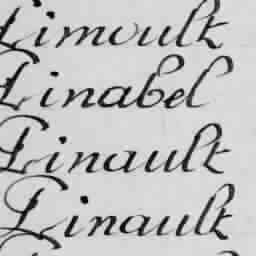 Limoult
Linabel
Linault
Linault